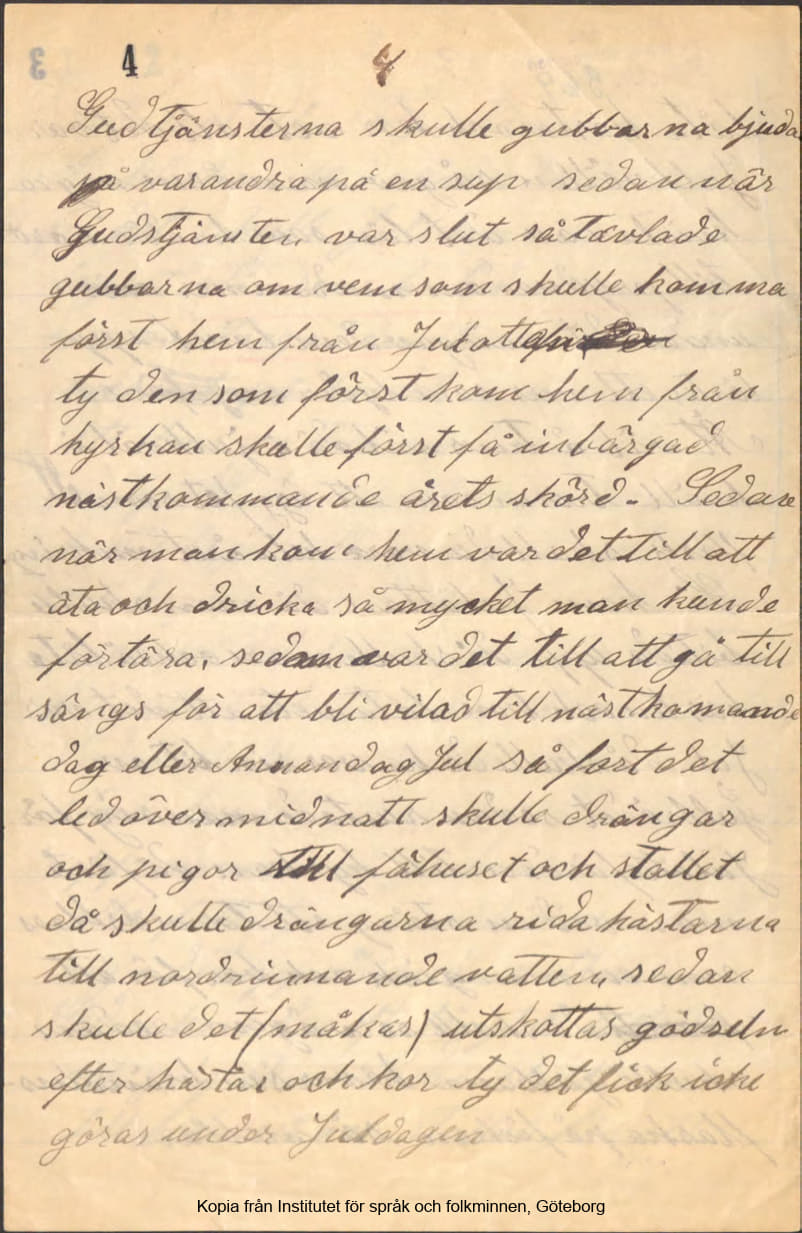 4 4
Gudtjänsterna skulle gubbarna bjuda
på varandra på en sup sedan när
Gudstjänsten var slut så tävlade
gubbarna om vem som skulle komma
först hem från Julottan
ty den som först kom hem från
kyrkan skulle först få inbärgad
nästkommande årets skörd. Sedan
när man kom hem var det till att
äta och dricka så mycket man kunde
förtära, sedan var det till att gå till
sängs för att bli vilad till nästkomande
dag eller Annandag Jul så fort det
led över midnatt skulle drängar
och pigor till fähuset och stallet
då skulle drängarna rida hästarna
till nordrinnande vatten, sedan
skulle det (måkas) utskottas gödseln
efter hästar och kor ty det fick icke
göras under Juldagen
Kopia från Institutet för språk och folkminnen, Göteborg